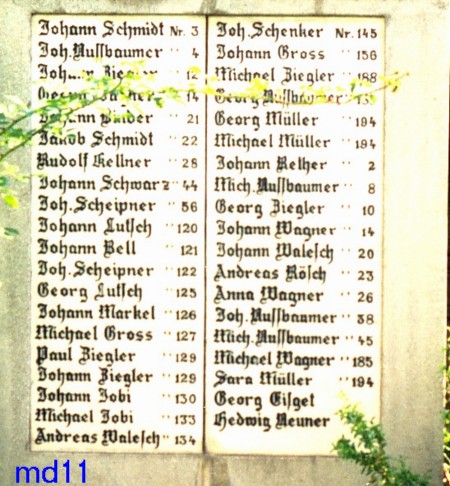 Johann Schmidt Nr. 3
Joh. Nussbaumer " 4
Johann Ziegler " 12
14
Johann " 21
Jakob Schmidt " 22
Rudolf Kellner " 28
Johann Schwarz " 44
Joh. Scheipner " 56
Johann Lutsch " 120
Johann Bell " 121
Joh. Scheipner " 122
Georg Lutsch " 125
Johann Markel " 126
Michael Gross " 127
Paul Ziegler " 129
Johann Ziegler " 129
Johann Jobi " 130
Michael Jobi " 133
Andreas Walesch " 134
Joh. Schenker Nr. 145
Johann Gross " 156
Michael Ziegler " 188
Georg Nussbaumer
Georg Müller " 194
Michael Müller " 194
Johann Kelher " 2
Mich. Nussbaumer " 8
Georg Ziegler " 10
Johann Wagner " 14
Johann Walesch " 20
Andreas Rösch " 23
Anna Wagner " 26
Joh. Nussbaumer " 38
Mich. Nussbaumer " 45
Michael Wagner " 185
Sara Müller " 194
Georg Eisget
Hedwig Neuner
md11